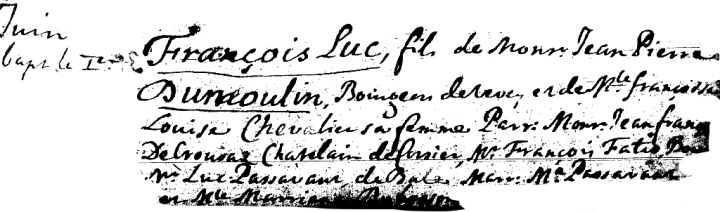 Juin
bapt. le 1er
François Luc, fils de Monsr Jean Pierre
Dumoulin, Bourgeois de Vevey, et de Me françoise
Louise Chevalier sa femme Parr: Monsr Jean franç
DeCrousaz Chatelain de Corsier, Mr François Fatio
Mr Luc Passavant de Bale, Marr: Me Passavant
et Me